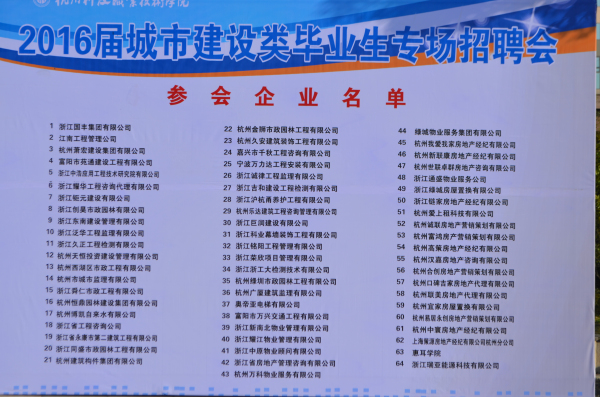 杭州科技职业技术学院
2016届城市建设类毕业生专场招聘会
参会企业名单
1 浙江国丰集团有限公司
2 江南工程管理公司
3 杭州萧宏建设集团有限公司
4 富阳市苑通建设工程有限公司
5 浙江中浩应用工程技术研究院有限公司
6 浙江耀华工程咨询代理有限公司
7 浙江钜元建设有限公司
8 浙江创昊市政园林有限公司
9 浙江东南建设管理有限公司
10 浙江泛华工程监理有限公司
11 浙江久正工程检测有限公司
12 杭州天恒投资建设管理有限公司
13 杭州西湖区市政工程有限公司
14 杭州市城市监理有限公司
15 浙江舜仁市政工程有限公司
16 杭州恒鼎园林建设集团有限公司
17 杭州博凯自来水有限公司
18 浙江省工程咨询公司
19 浙江省永康市第二建筑工程有限公司
20 浙江同盛市政园林工程有限公司
21 杭州建筑构件集团有限公司
22 杭州金牌市政园林工程有限公司
23 杭州久安建筑装饰工程有限公司
24 嘉兴市千秋工程咨询有限公司
25 宁波万力达工程安装有限公司
26 浙江诚律工程监理有限公司
27 浙江吉和建设工程检测有限公司
28 浙江沪杭甬养护工程有限公司
29 杭州乐达建筑工程咨询管理有限公司
30 浙江巨润建设有限公司
31 浙江科业幕墙装饰工程有限公司
32 浙江铭阳工程管理有限公司
33 浙江荣欣项目管理有限公司
34 浙江浙工大检测技术有限公司
35 杭州绿圳市政园林工程有限公司
36 杭州广厦建筑监理有限公司
37 奥帝亚电梯有限公司
38 富阳市万兴交通工程有限公司
39 浙江浙南北物业管理有限公司
40 浙江耀江物业管理有限公司
41 浙江中原物业顾问有限公司
42 浙江省房地产管理咨询有限公司
43 杭州万科物业服务有限公司
44 绿城物业服务集团有限公司
45 杭州我爱我家房地产经纪有限公司
46 杭州新联康房地产经纪有限公司
47 杭州世联卓群房地产咨询有限公司
48 浙江通盛物业服务公司
49 浙江绿城房屋置换有限公司
50 浙江链家房地产经纪有限公司
51 杭州爱上租科技有限公司
52 杭州诚联房地产营销策划有限公司
53 杭州富鸿房产营销策划有限公司
54 杭州高策房地产经纪有限公司
55 杭州汉嘉房地产咨询有限公司
56 杭州合创房地产营销策划有限公司
57 杭州口碑吉家房地产代理有限公司
58 杭州联美房地产代理有限公司
59 杭州宜家房屋置换有限公司
60 杭州易居永创房地产营销策划有限公司
61 杭州中寰房地产经纪有限公司
62 上海策源房地产经纪有限公司杭州分公司
63 惠耳学院
64 浙江瑞亚能源科技有限公司